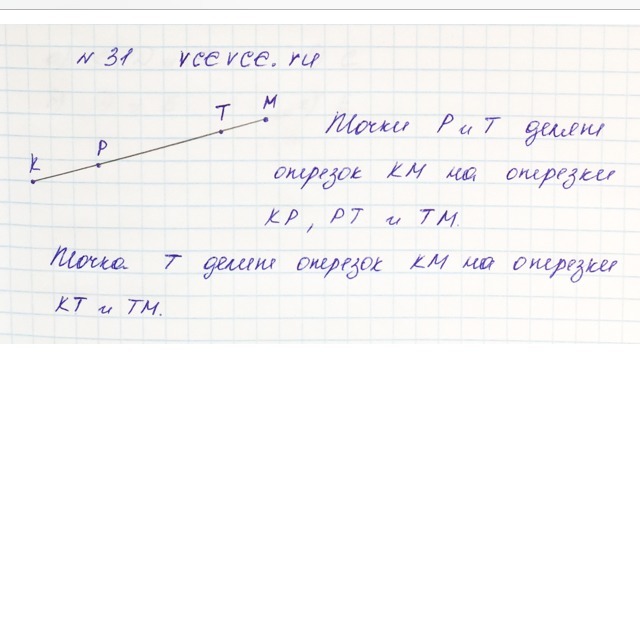 N 31 vcevce.ru
K P T M
Точки P и T делят
отрезок KM на отрезки
KP, PT и TM.
Точка T делит отрезок KM на отрезки
KT и TM.